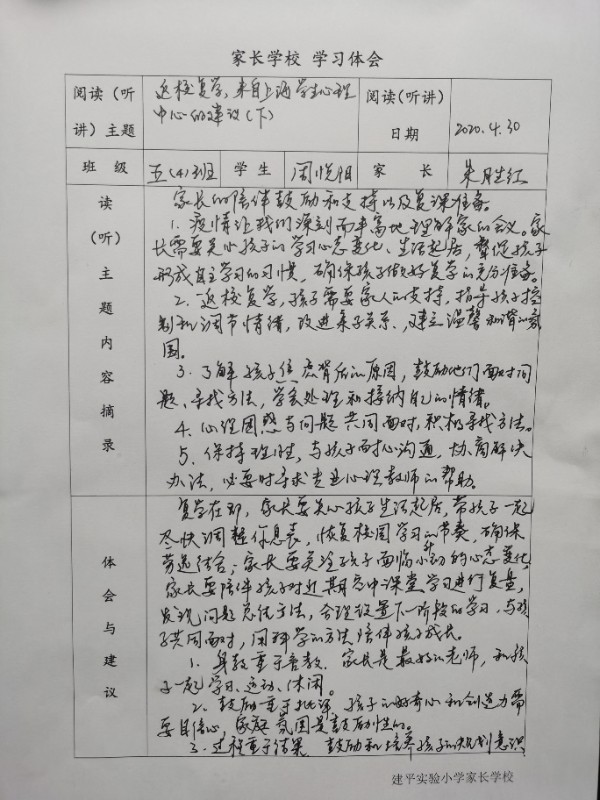 家长学校 学习体会
阅读（听讲）主题
返校复学，来自上海学生心理中心的建议（下）
阅读（听讲）日期
2020.4.30
班 级 五（4）班 学 生 周悦阳 家 长 朱胜红
读（听）主题内容摘录
家长的陪伴鼓励和支持以及复课准备。
1. 疫情让我们深刻而丰富地理解家的含义。家
长需要关心孩子的学习心态变化、生活起居，督促孩子
形成自主学习的习惯，确保孩子做好复学的充分准备。
2. 返校复学，孩子需要家人的支持，指导孩子控
制和调节情绪，改进亲子关系，建立温馨和谐的氛
围。
3. 了解孩子焦虑背后的原因，鼓励他们面对问
题、寻找方法，学会处理和接纳自己的情绪。
4. 心理困惑与问题共同面对，积极寻找方法。
5. 保持理性，与孩子耐心沟通，协商解决
办法，必要时寻求专业心理教师的帮助。
体会与建议
复学在即，家长要关心孩子生活起居，带孩子一起
尽快调整作息表，恢复校园学习的节奏，确保
劳逸结合；家长要关注孩子面临小升初的心态变化，
家长要陪伴孩子对近期空中课堂学习进行复盘，
发现问题总结方法，合理设置下一阶段的学习，与孩
子共同面对，用科学的方法陪伴孩子成长。
1. 身教重于言教。家长是最好的老师，和孩
子一起学习、运动、休闲。
2. 鼓励重于批评。孩子的好奇心和创造力需
要自信心，家庭氛围是鼓励性的。
3. 过程重于结果。鼓励和培养孩子的规划意识
建平实验小学家长学校